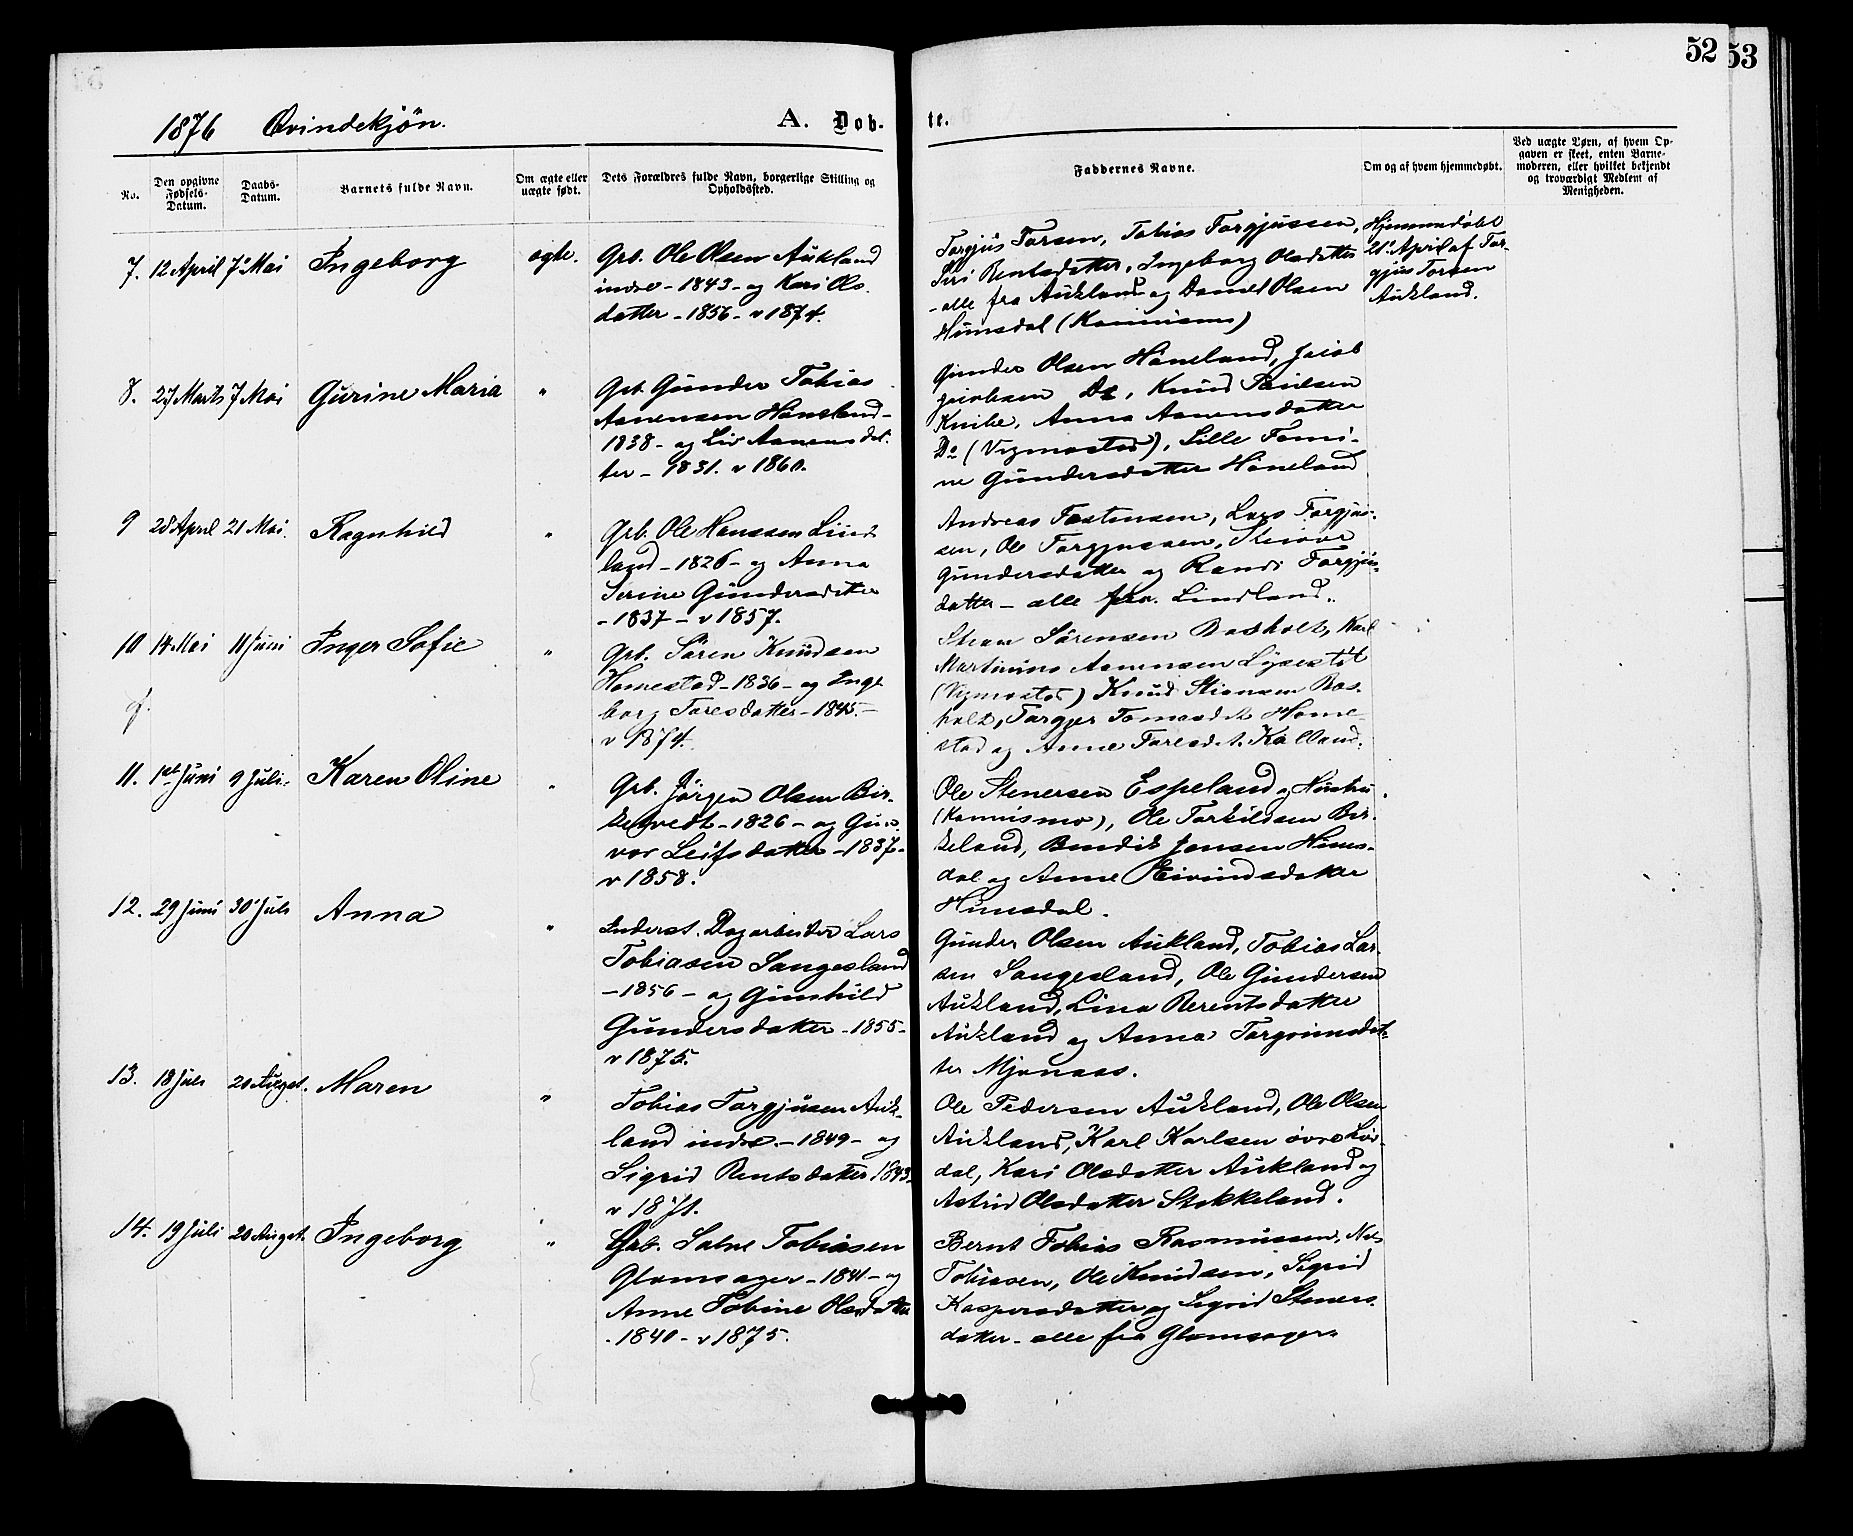 52
53
1876 Qvindekjön.
A. Døb-
te.
No.
Den opgivne Fødsels-Datum.
Daabs-Datum.
Barnets fulde Navn.
Om ægte eller uægte født.
Dets Forældres fulde Navn, borgerlige Stilling og Opholdssted.
Faddernes Navne.
Om og af hvem hjemmedøbt.
Ved uægte Børn, af hvem Opgaven er skeet, enten Barnemoderen, eller hvilket bekjendt og troværdigt Medlem af Menigheden.
7. 12 April 7 Mai Ingeborg ægte.
Grb. Ole Olsen Aukland
indre - 1843 - og Kari Ols-
datter - 1856 - v 1874.
Torgjus Torsen, Tobias Torgjussen,
Siri Bentsdatter, Ingeborg Olsdatter
- alle fra Aukland og Daniel Olsen
Himsdal
Hjemmedøbt
21' April af Tor-
gjus Torsen
Aukland.
8. 27 Marts 7 Mai Gurine Maria "
Grb. Gunder Tobias
Aanensen Höneland -
1838 - og Liv Aanensdat-
ter - 1831. v 1860.
Gunder Olsen Höneland, Jacob
Jacobsen Do, Knud Paulsen
Knibe, Anna Aanensdatter
Do (Vigmostad), Sille Tomi-
ne Gundersdatter Höneland
9 28 April 21 Mai. Ragnhild "
Grb. Ole Hanssen Lind-
land - 1826 - og Anna
Serine Gundersdatter
- 1837 - v 1857.
Andreas Tostensen, Lars Torgjus-
sen, Ole Torgjussen,
Gundersdatter og Randi Torgjus-
datter - alle fra Lindland.
10 14 Mai 11 Juni Inger Sofie "
Grb. Sören Knudsen
Homestad - 1836 - og Inge
borg Toresdatter - 1845. -
v 1874.
Stian Sörensen Bosholt, Karl
Martinius Aanensen Lysestöl
(Vigmostad) Knud Stiansen Bos-
holt, Torgjer Tomasdt. Home-
stad og Anne Toresdt. Kålland.
11. 1st Juni 9 Juli. Karen Oline "
Grb. Jörgen Olsen Bir-
kelvedt - 1826 - og Gun-
vor Leifsdatter - 1837 -
v 1858.
Ole Stenersen Espeland og Hustru
Ole Torkildsen Bir-
keland, Bendik Jensen Hims-
dal og Anne Eivindsdatter
Himsdal.
12. 29 Juni 30' Juli Anna "
Inderst. Dagarbeider Lars
Tobiasen Sangesland
- 1856 - og Gunhild
Gundersdatter - 1855 -
v 1875.
Gunder Olsen Aukland, Tobias Lar-
sen Sangesland, Ole Gundersen
Aukland, Lina Berentsdatter
Aukland og Anna Torgrimsdat-
ter Mjonaas.
13. 18 Juli 20 August. Maren "
Tobias Torgjusen Auk-
land indre. - 1849 - og
Sigrid Bentsdatter 1843.
v 1871.
Ole Pedersen Aukland, Ole Olsen
Aukland, Karl Karlsen övre
dal, Kari Olsdatter Aukland og
Astrid Olsdatter Stokkeland.
14. 19 Juli 20 August. Ingeborg "
Grb. Salve Tobiasen
Glomsager - 1841 - og
Anne Tobine Olsdatter
- 1840 - v 1875.
Bernt Tobias Rasmussen, Nils
Tobiasen, Ole Knudsen, Sigrid
Kaspersdatter og Sigrid Steners-
datter - alle fra Glomsager.